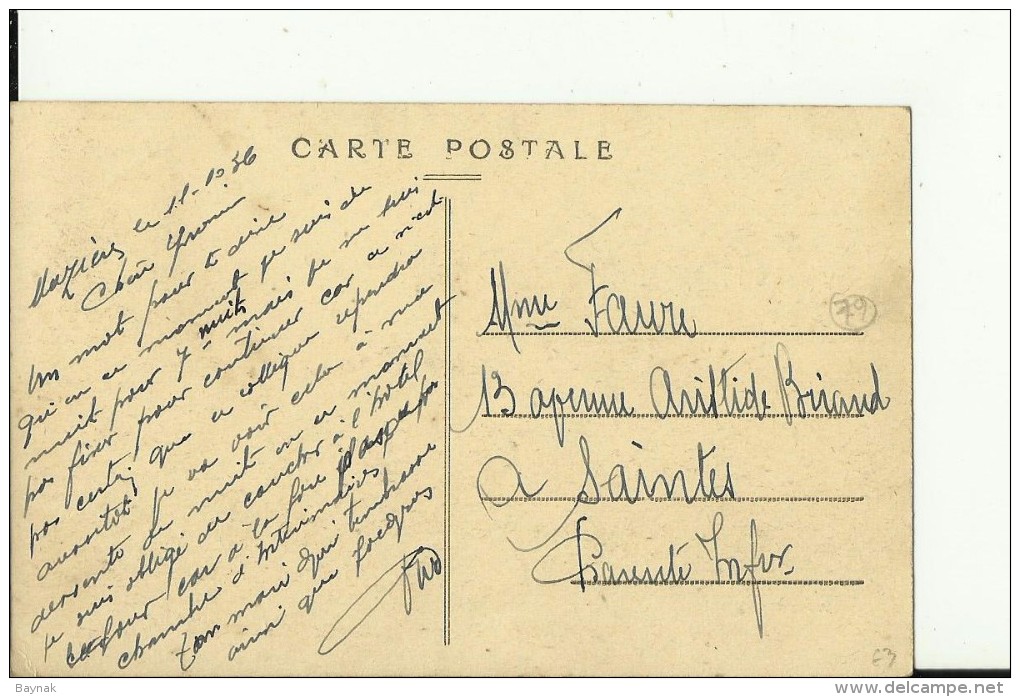 CARTE POSTALE
Mazières le 11-10 36
Un mot pour te dire
qu'en ce moment je suis de
nuit pour 7 nuits mais je ne suis
pas fixé pour continuer car ce n'est
pas certain que ce collègue reprendra
aussitôt, je va voir cela à ma
descente de nuit en ce moment
je suis obligé de coucher à l'hôtel
le jour car à la
chambre d'intérimaires
ton mari qui t'embrasse
ainsi que Jacques
Mme Faure
13 avenue Aristide Briand
a Saintes
Charente Infre
79
63
Baynak
www.delcampe.net